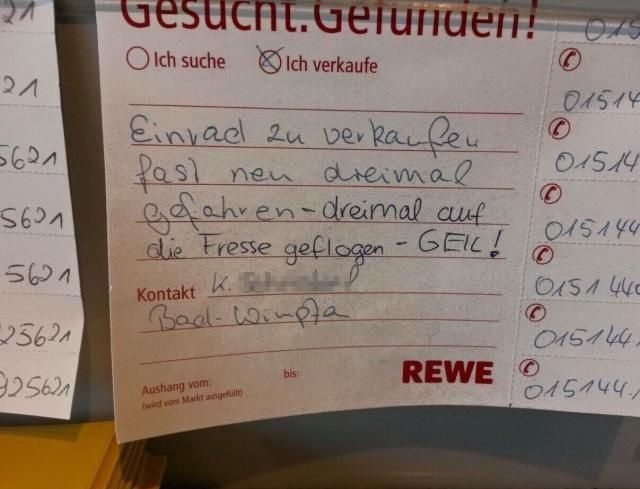 Gesucht.Gefunden!
Ich suche Ich verkaufe
Einrad zu verkaufen
fast neu dreimal
gefahren-dreimal auf
die Fresse geflogen - GEIL!
Kontakt K.
Bad-Wimpfen
Aushang vom: bis:
(wird vom Markt ausgefüllt)
REWE
21
21
5621
5621
5621
25621
925621
015
01514
01514
015144
0151440
015144.
015144.